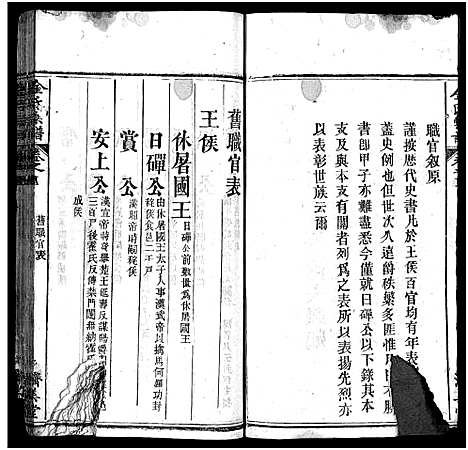 職官叙原
謹按歷代史書凡於王侯百官均有年表
蓋史例也但世次久遠爵秩繁多匪惟月
書即甲子亦難盡悉今僅就日磾公以下錄其本
支及與本支有關者列爲之表所以表揚先烈亦
以表彰世族云爾
舊職官表
王侯
休屠國王 日磾公前數世爲休屠國王
日磾公 由休屠國王太子入事漢武帝以擒馬何羅功封
秺侯食邑二千戶
賞公 漢昭帝時嗣秺侯
安上公 漢宣帝時發舉楚王延壽反謀賜爵關
三百戶後霍氏反傳禁門闥無納霍氏
成侯
金氏宗譜
舊職官表